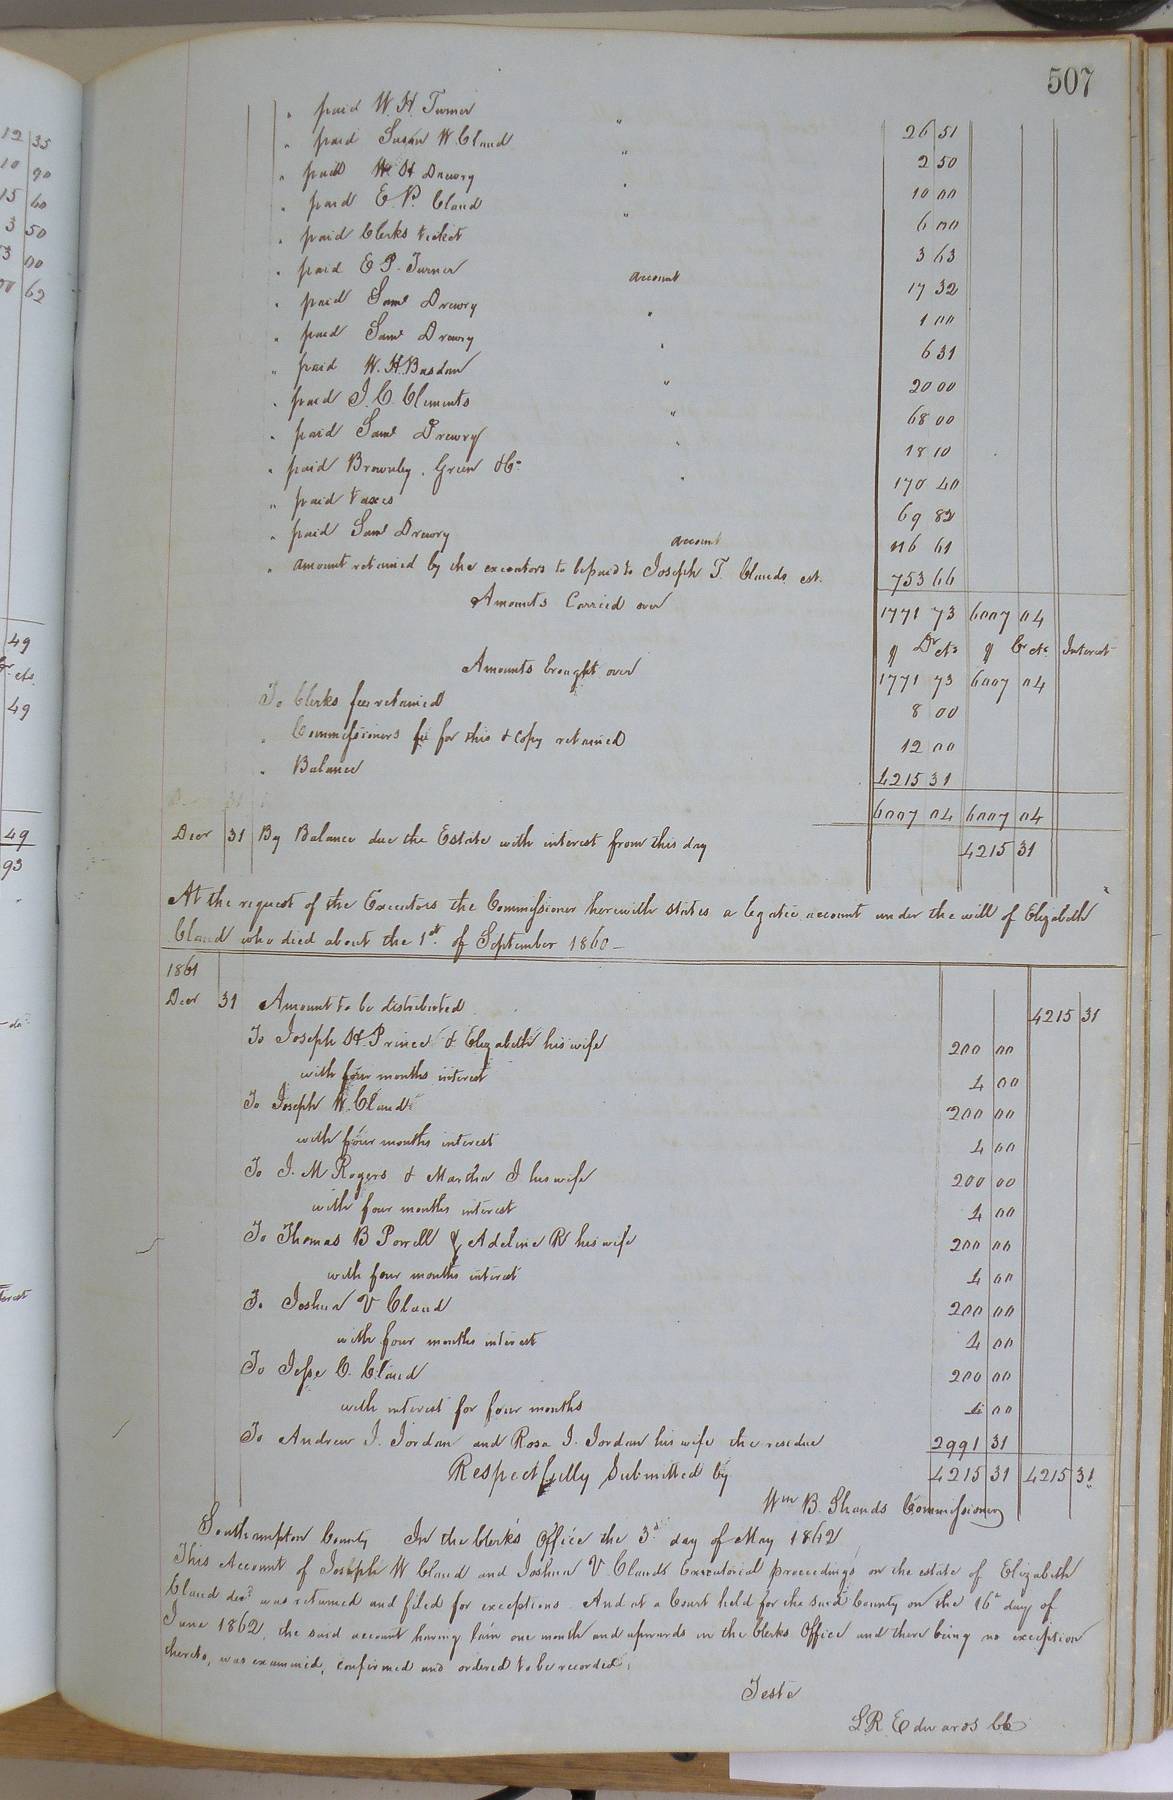 507
" paid W. H. Turner " 26 51
" paid Susan W. Claud " 2 50
" paid W. H. Drewry " 10 00
" paid E. P. Claud " 6 00
" paid Clerks ticket 3 63
" paid E. P. Turner account 17 32
" paid Saml Drewry " 1 00
" paid Saml Drewry " 6 31
" paid W. H. Basden " 20 00
" paid J. C. Clements " 68 00
" paid Saml Drewry " 18 10
" paid Brownley, Green & Co " 170 40
" paid taxes 69 82
" paid Saml Drewry account 116 61
" amount retained by the executors to be paid to Joseph T. Clauds est. 753 66
Amounts Carried over 1771 73 6007 04
$ Dr cts $ Cr cts Interest
Amounts brought over 1771 73 6007 04
To Clerks fees retained 8 00
" Commissioners fee for this & copy retained 12 00
" Balance 4215 31
6007 04 6007 04
Decr 31 By Balance due the Estate with interest from this day 4215 31
At the request of the Executors the Commissioner herewith states a legatee account under the will of Elizabeth
Claud who died about the 1st. of September 1860 –
1861
Decr 31 Amount to be distributed 4215 31
To Joseph H. Prince & Elizabeth his wife 200 00
with four months interest 4 00
To Joseph W. Claud 200 00
with four months interest 4 00
To J. M Rogers & Martha J his wife 200 00
with four months interest 4 00
To Thomas B Powell & Adeline R his wife 200 00
with four months interest 4 00
To Joshua V Claud 200 00
with four months interest 4 00
To Jesse C. Claud 200 00
with interest for four months 4 00
To Andrew J. Jordan and Rosa J. Jordan his wife the residue 2991 31
Respectfully Submitted by 4215 31 4215 31
Wm B. Shands Commissioner
Southampton County In the Clerk's Office the 3d day of May 1862
This Account of Joseph W Claud and Joshua V. Clauds Executorial proceedings on the estate of Elizabeth
Claud decd was returned and filed for exceptions. And at a Court held for the said County on the 16th day of
June 1862, the said account having lain one month and upwards in the Clerks Office and there being no exception
thereto, was examined, confirmed and ordered to be recorded.
Teste
L R Edwards Clk